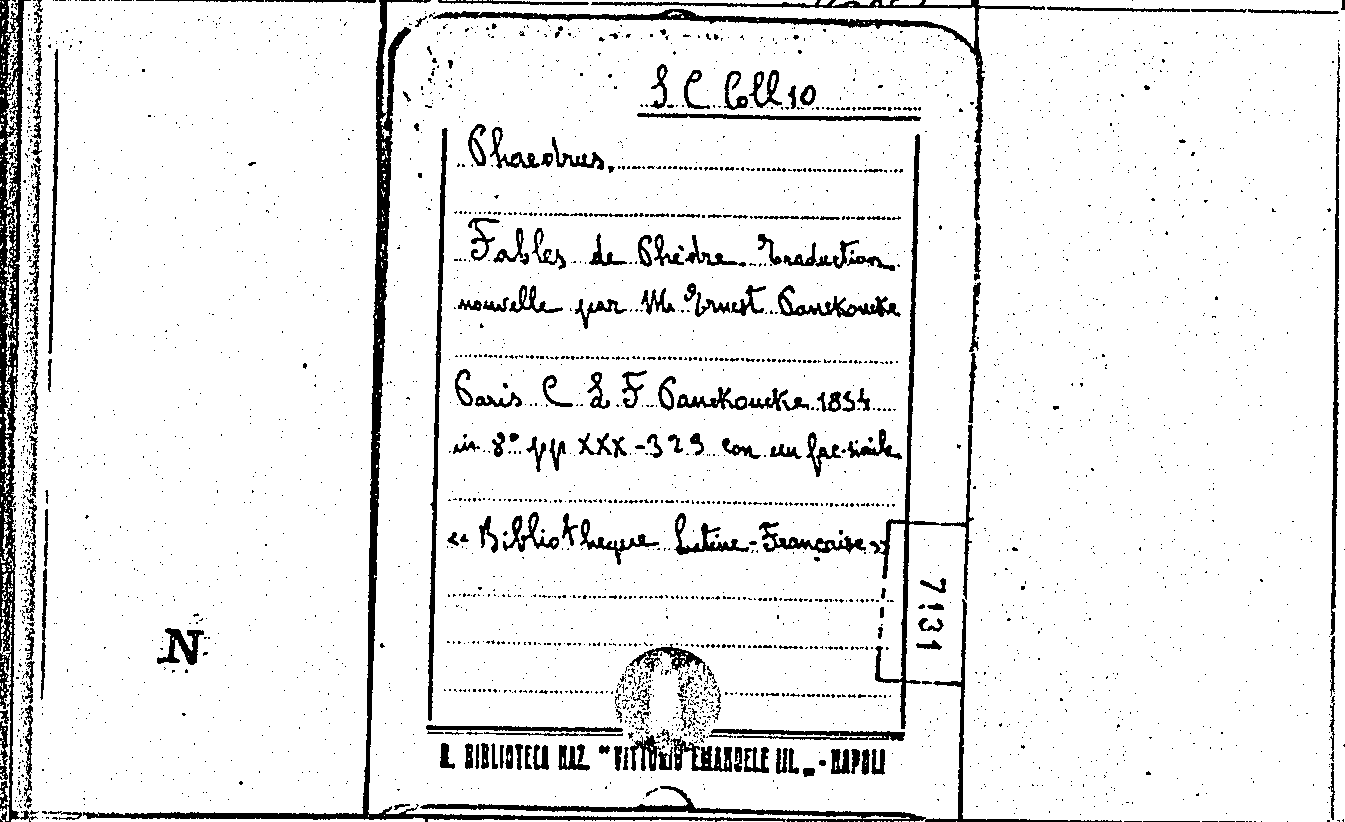 S C Coll 10
Phaedrus.
Fables de Phèdre. Traduction
nouvelle par M. Ernest Panckoucke
Paris C L F Panckoucke 1834
in 8° pp XXX-329 con un fac-simile
«Bibliotheque Latine-Française»
7131
N
R. BIBLIOTECA NAZ. "VITTORIO EMANUELE III." - NAPOLI